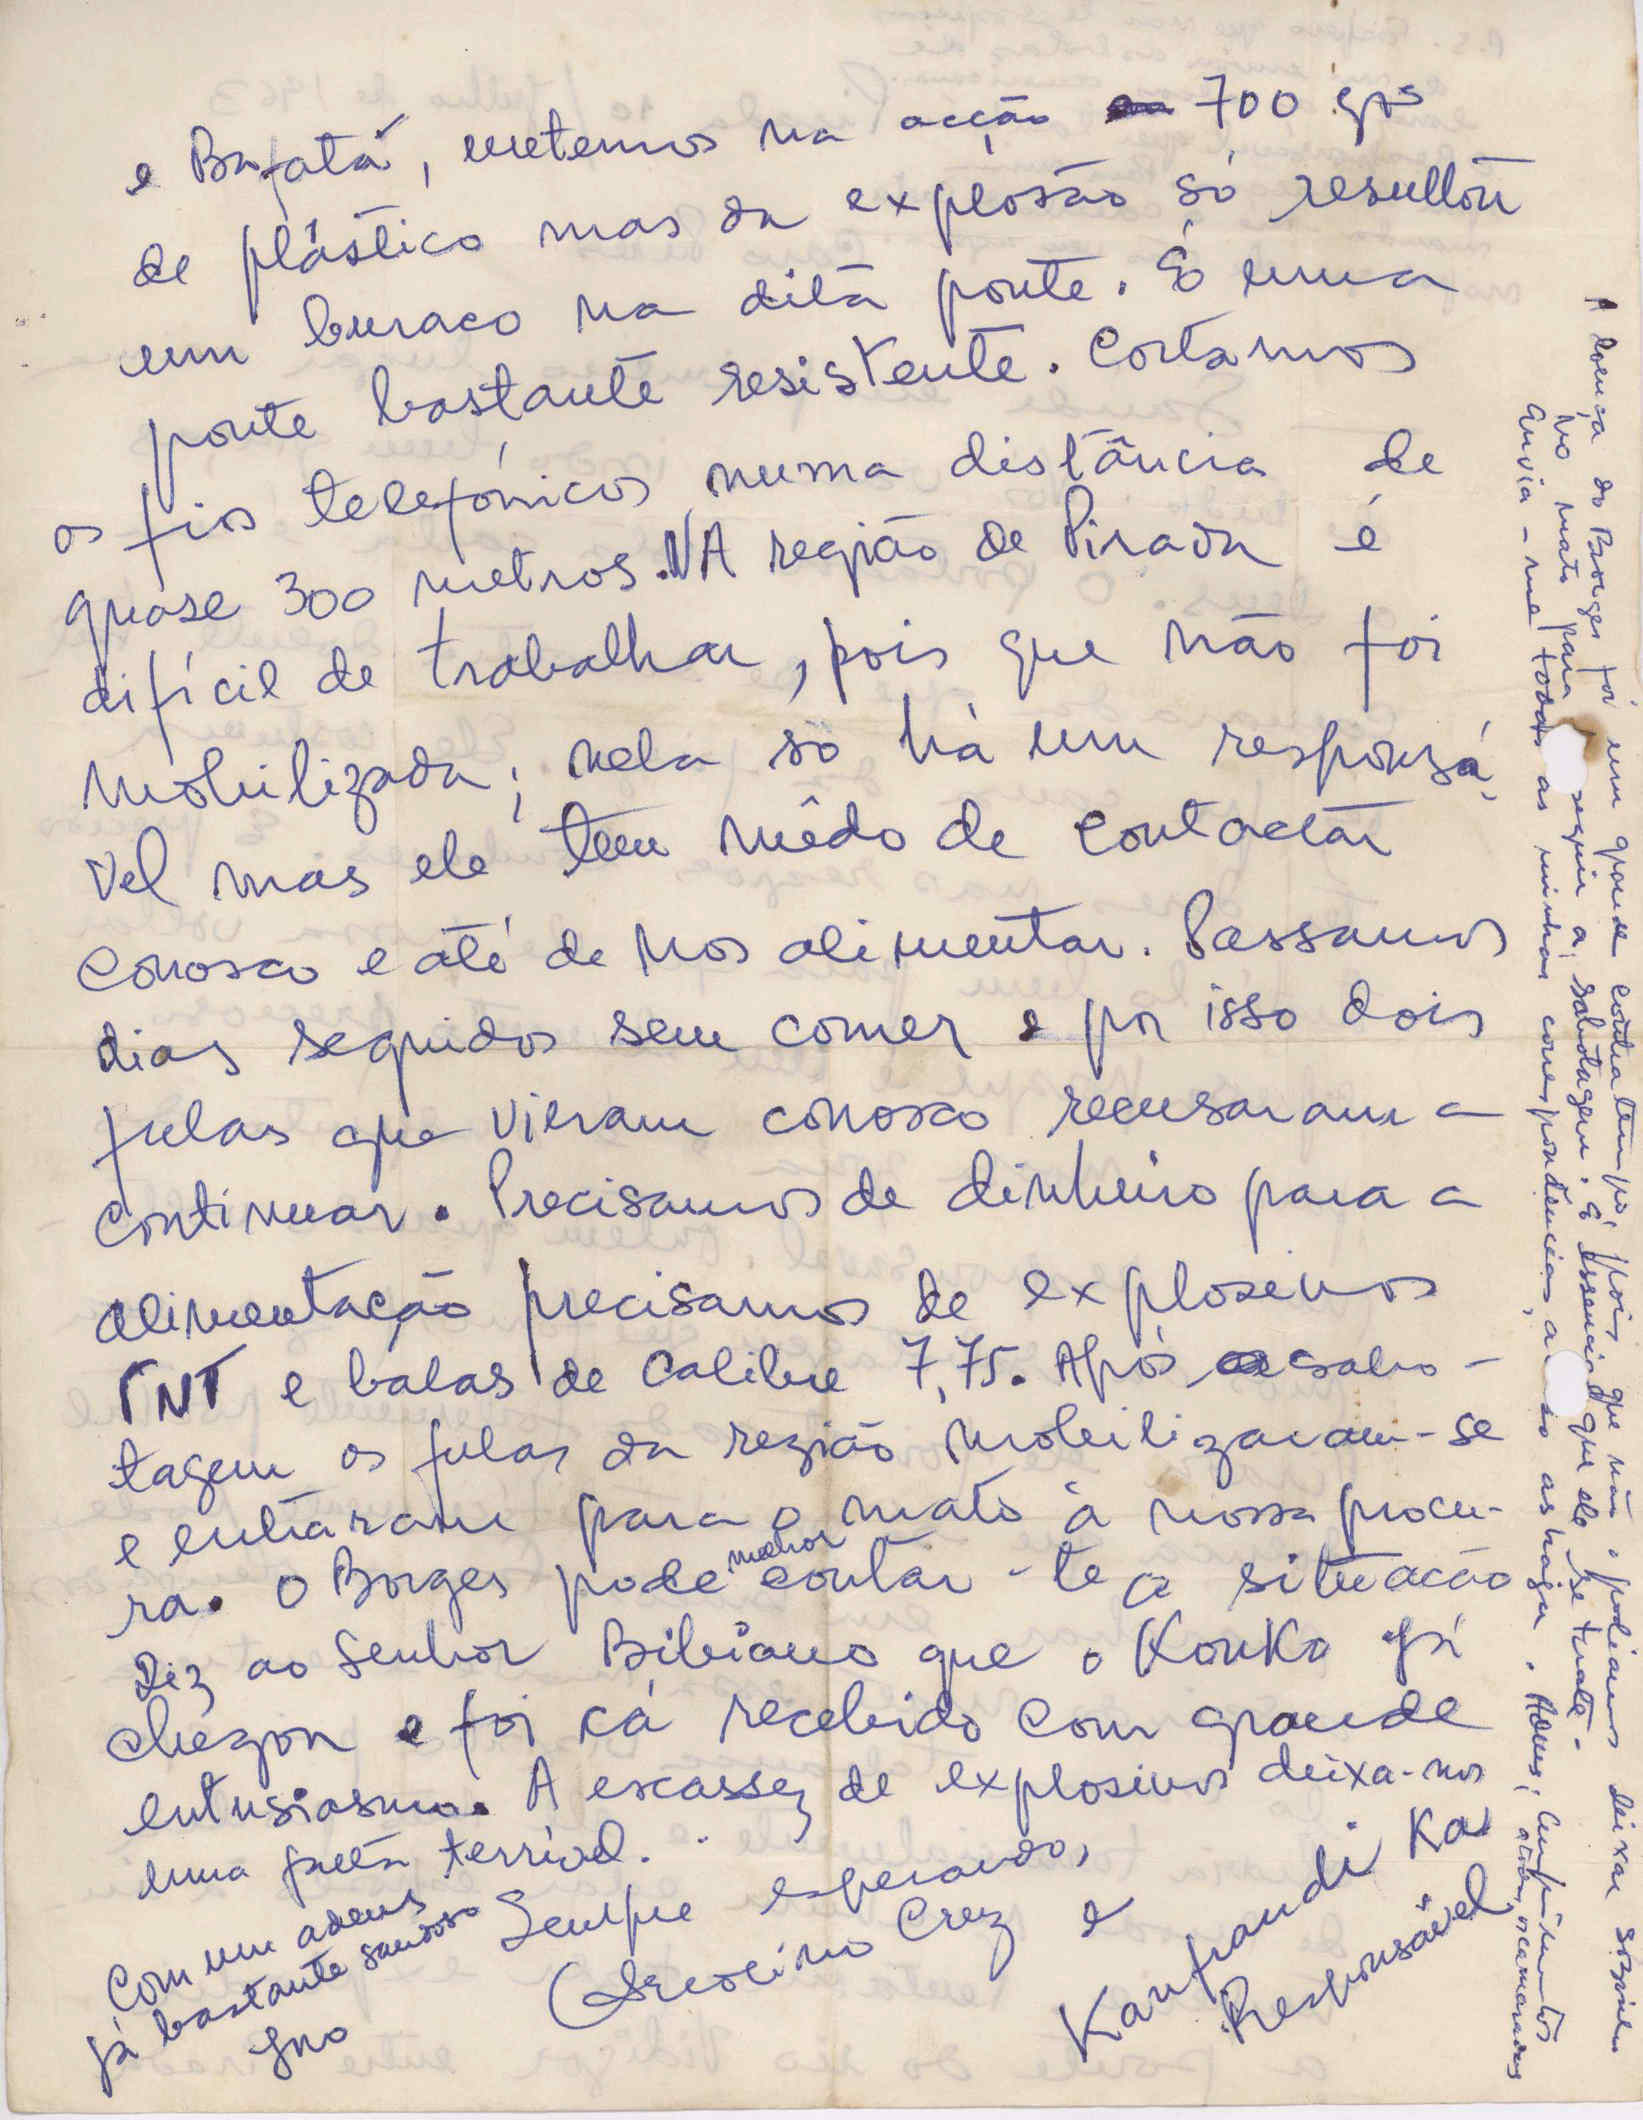 e Bafatá, metemos na acção 700 grs
de plástico mas da explosão só resultou
um buraco na dita ponte. É uma
ponte bastante resistente. Cortamos
os fios telefónicos numa distância de
quase 300 metros. NA região de Pirada é
difícil de trabalhar, pois que não foi
mobilizada; nela só há um responsá-
vel mas ele tem mêdo de contactar
conosco e até de nos alimentar. Passamos
dias seguidos sem comer e por isso dois
fulas que vieram conosco recusaram a
continuar. Precisamos de dinheiro para a
alimentação precisamos de explosivos
TNT e balas de calibre 7,75. Após a sabo-
tagem os fulas da região mobilizaram-se
e entraram para o mato à nossa procu-
ra. O Borges pode melhor contar-te a situação
Diz ao Senhor Bibiano que o Konko já
chegou e foi cá recebido com grande
entusiasmo. A escassez de explosivos deixa-nos
numa terrível.
Sempre esperando,
Com um adeus
já bastante saudoso
Cruz e
Kanfrandi Ka
Responsável
A doença do Borges foi um grande contratempo, pois que não o podíamos deixar sozinho
no mato para seguir a sabotagem. É essencial que ele se trate.
Envia-me todas as minhas correspondências, as traga. Adeus, cumprimentos
a todos os camaradas